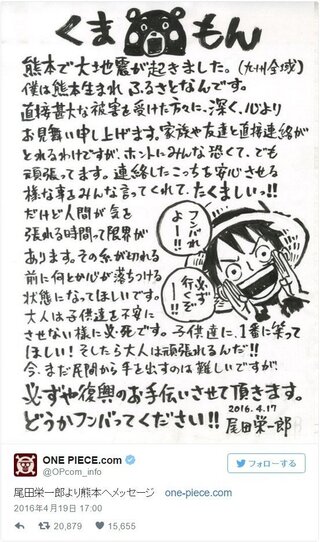 くま もん
熊本で大地震が起きました。(九州全域)
僕は熊本生まれ ふるさとなんです。
直接甚大な被害を受けた方々に、深く、心より
お見舞い申し上げます。家族や友達と直接連絡が
とれるわけですが、ホントにみんな恐くて、でも
頑張ってます。連絡したこっちを安心させる
様な事をみんな言ってくれて、たくましいっ!!
だけど人間が気を
張れる時間って限界が
あります。その糸が切れる
前に何とか心が落ちつける
状態になってほしいです。
大人は子供達を不安に
させない様に必死です。子供達に、1番に笑って
ほしい!そしたら大人は頑張れるんだ!!
今、まだ民間から手を出すのは難しいですが
必ずや復興のお手伝いさせて頂きます。
どうかフンバってください!!
フンバれ
よー!!
必ず
行くぞ
ー!!
2016.4.17
尾田栄一郎
ONE PIECE.com
@OPcom_info
フォローする
尾田栄一郎より熊本へメッセージ one-piece.com
2016年4月19日 17:00
20,879 15,655